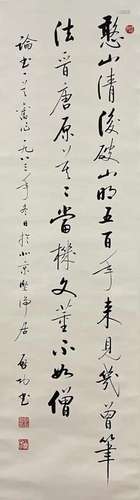 憨山清後破山明五百年来見幾曾筆
法晋唐原莫二當機文董不如僧
論書一首舊作一九八三年冬日於北京堅净居 啟功書